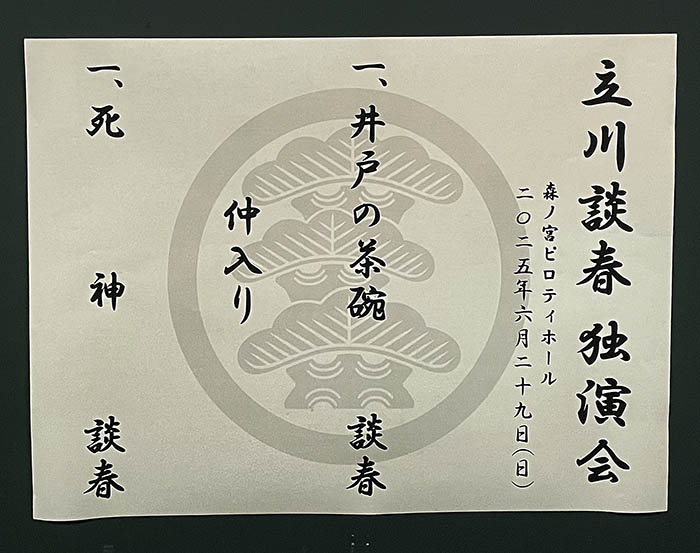 立川談春 独演会
森ノ宮ピロティホール
二〇二五年六月二十九日(日)
一、井戸の茶碗 談春
仲入り
一、死 神 談春